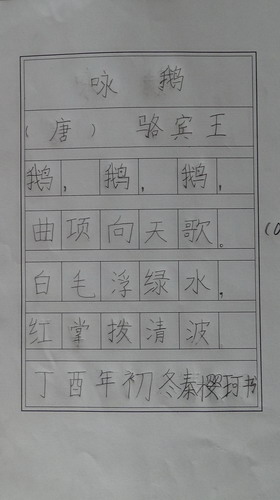 咏 鹅
（唐） 骆宾王
鹅，鹅，鹅，
曲项向天歌。
白毛浮绿水，
红掌拨清波。
丁酉年初冬秦樱珂书